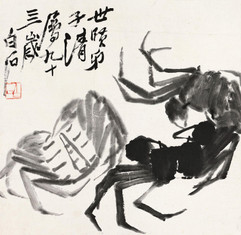 世贤弟
子清
属九十
三歲
白石